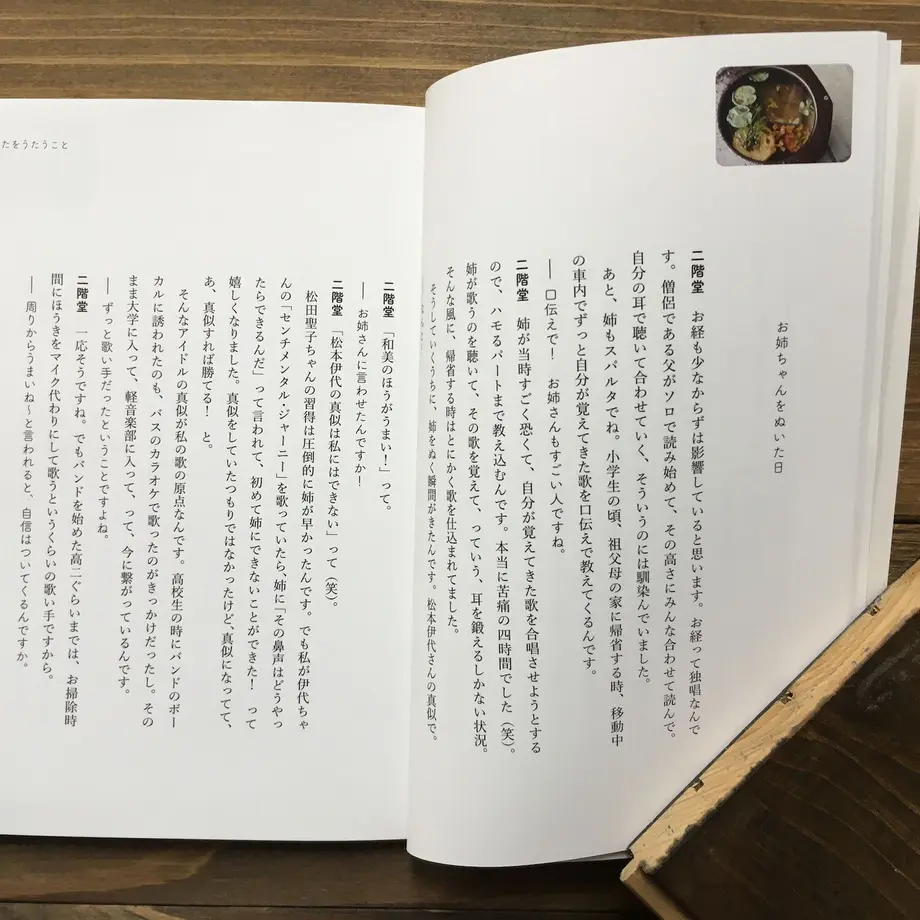 お姉ちゃんをぬいた日
二階堂　お経も少なからずは影響していると思います。お経って独唱なんで
す。僧侶である父がソロで読み始めて、その高さにみんな合わせて読んで。
自分の耳で聴いて合わせていく、そういうのには馴染んでいました。
あと、姉もスパルタでね。小学生の頃、祖父母の家に帰省する時、移動中
の車内でずっと自分が覚えてきた歌を口伝えで教えてくるんです。
── 口伝えで！　お姉さんもすごい人ですね。
二階堂　姉が当時すごく恐くて、自分が覚えてきた歌を合唱させようとする
ので、ハモるパートまで教え込むんです。本当に苦痛の四時間でした（笑）。
姉が歌うのを聴いて、その歌を覚えて、っていう、耳を鍛えるしかない状況。
そんな風に、帰省する時はとにかく歌を仕込まれてました。
そうしていくうちに、姉をぬく瞬間がきたんです。松本伊代さんの真似で。
たをうたうこと
二階堂　「和美のほうがうまい！」って。
── お姉さんに言わせたんですか！
二階堂　「松本伊代の真似は私にはできない」って（笑）。
松田聖子ちゃんの習得は圧倒的に姉が早かったんです。でも私が伊代ちゃ
んの「センチメンタル・ジャーニー」を歌っていたら、姉に「その鼻声はどうやっ
たらできるんだ」って言われて、初めて姉にできないことができた！　って
嬉しくなりました。真似をしていたつもりではなかったけど、真似になってて、
あ、真似すれば勝てる！　と。
そんなアイドルの真似が私の歌の原点なんです。高校生の時にバンドのボー
カルに誘われたのも、バスのカラオケで歌ったのがきっかけだったし。その
まま大学に入って、軽音楽部に入って、って、今に繋がっているんです。
── ずっと歌い手だったということですよね。
二階堂　一応そうですね。でもバンドを始めた高二ぐらいまでは、お掃除時
間にほうきをマイク代わりにして歌うというくらいの歌い手ですから。
── 周りからうまいね〜と言われると、自信はついてくるんですか。